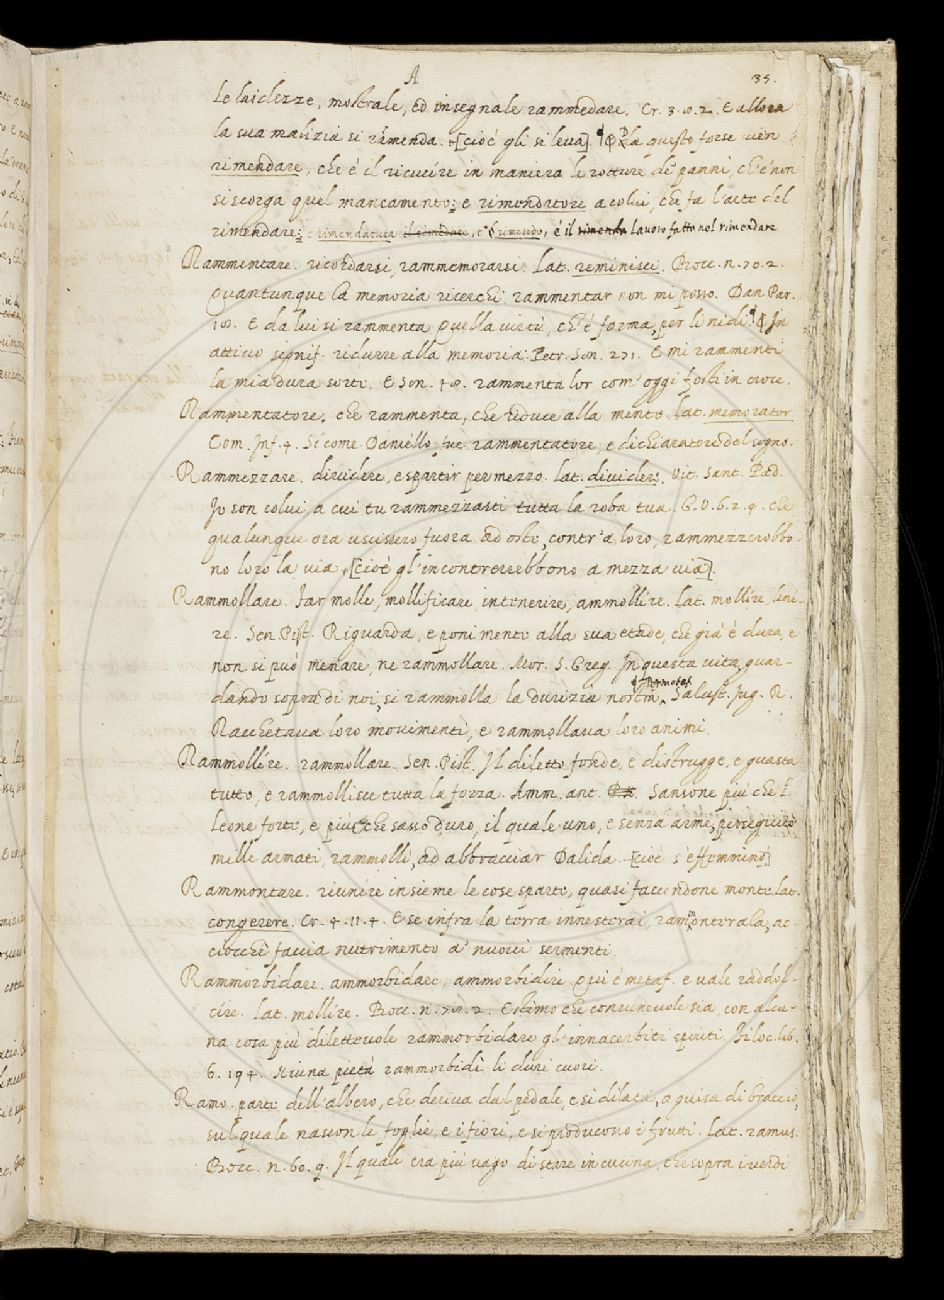 A 35.
le laidezze, mostrale, ed insegnale rammedare. Cr. 3. 8. 2. E allora
la sua malizia si ramenda. [cioè gli si leva] Da questo forse vien
rimendare, che è il ricucire in maniera le rotture de' panni, ch'e' non
si scorga quel mancamento: e rimendatore a colui, che fa l'arte del
rimendare: e rimendatura, e rimendo, è il lavoro fatto nel rimendare
Rammentare. ricordarsi, rammemorarsi. Lat. reminisci. Bocc. n. 70. 2.
Quantunque la memoria ricerchi, rammentar non mi posso. Dan. Par.
18. E da lui si rammenta quella virtù, ch'è forma, per li nidi. ¶ In
attivo signif. ridurre alla memoria. Petr. Son. 231. E mi rammenti
la mia dura sorti. E Son. 48. rammenta lor com' oggi fosti in croce.
Rammentatore. che rammenta, che reduce alla mente. Lat. memorator
Com. Inf. 4. Sì come Daniello fue rammentatore, e dichiaratore del sogno.
Rammezzare. dividere, e spartir per mezzo. Lat. dividere. Vit. Sant. Pad.
Io son colui, a cui tu rammezzasti tutta la roba tua. G. V. 6. 2. 9. che
qualunque ora uscissero fuora ad oste, contr'a loro, rammezzerebbo
no loro la via, [cioè gl' incontrerrebbono a mezza via].
Rammollare. Far molle, mollificare intenerire, ammollire. Lat. mollire, leni-
re. Sen. Pist. Riguarda, e poni mente alla sua etade, che già è dura, e
non si può menare, ne rammollare. Mor. S. Greg. In questa vita, guar-
dando sopra di noi, si rammolla la durizia nostra. Salust. Jug. R.
Racchetava loro movimenti, e rammollava loro animi.
Rammollire. rammollare. Sen. Pist. Il diletto fonde, e distrugge, e guasta
tutto, e rammollisce tutta la forza. Amm. ant. Sansone più che 'l
leone forte, e più che sasso duro, il quale uno, e senza arme, perseguitò
mille armati, rammollì, ad abbracciar Dalida. [cioè s'effemminò]
Rammontare. riunire insieme le cose sparte, quasi facendone monte. Lat.
congerere. Cr. 4. 11. 4. E se infra la terra innesterai, rammonterala, ac-
ciocchè faccia nutrimento a' nuovi sermenti.
Rammorbidare. ammorbidare, ammorbidire. Qui è metaf. e vale raddol-
cire. Lat. mollire. Bocc. n. 78. 2. Estimo che convenevole sia, con alcu-
na cosa più dilettevole rammorbidare gl' innacerbiti spiriti. Filoc. lib.
6. 194. Niuna pietà rammorbidì li duri cuori.
Ramo. parte dell' albero, che deriva dal pedale, e si dilata, a guisa di braccio,
sul quale nascon le foglie, e i fiori, e si producono i frutti. Lat. ramus.
Bocc. n. 60. 9. Il quale era più vago di stare in cucina, che sopra i verdi